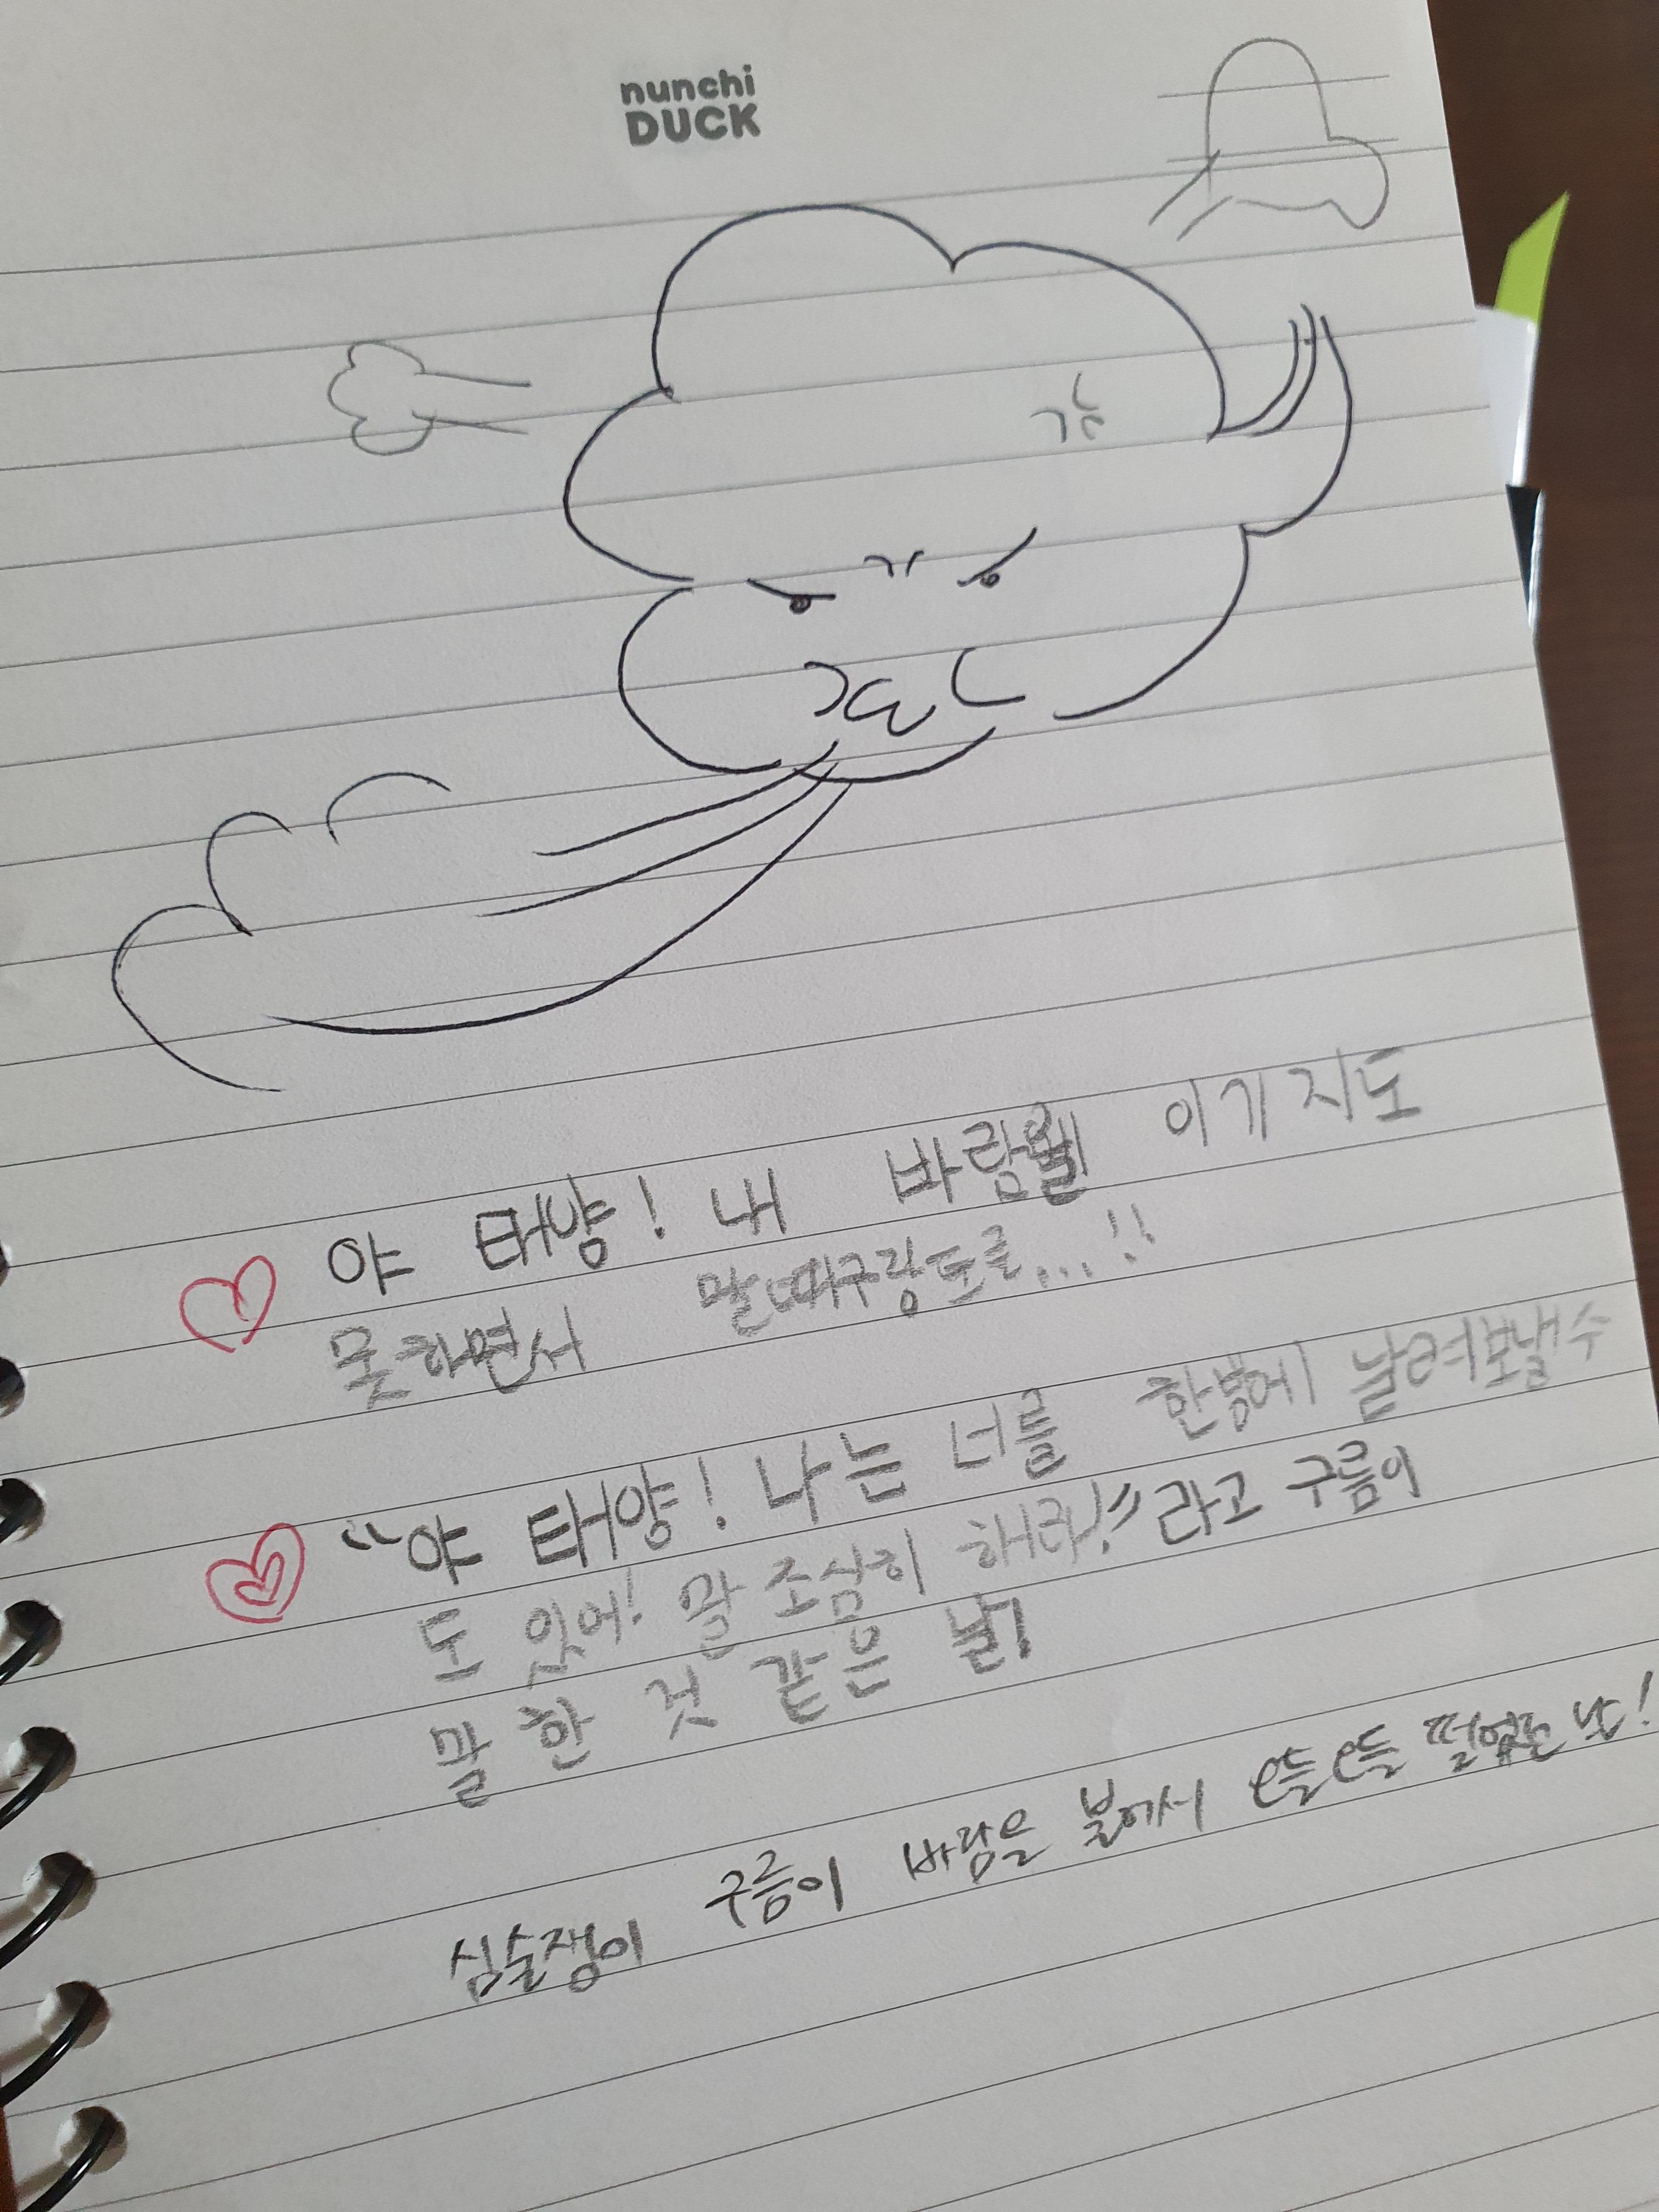 nunchi
DUCK
야 태양! 내 바람엔 이기지도
못하면서 말대구랑도로...!!
"야 태양! 나는 너를 한방에 날려보낼수
도 있어! 말 조심히 해라!"라고 구름이
말 한 것 같은 날!
심술쟁이 구름이 바람을 불어서 으들으들 떨었던 나!